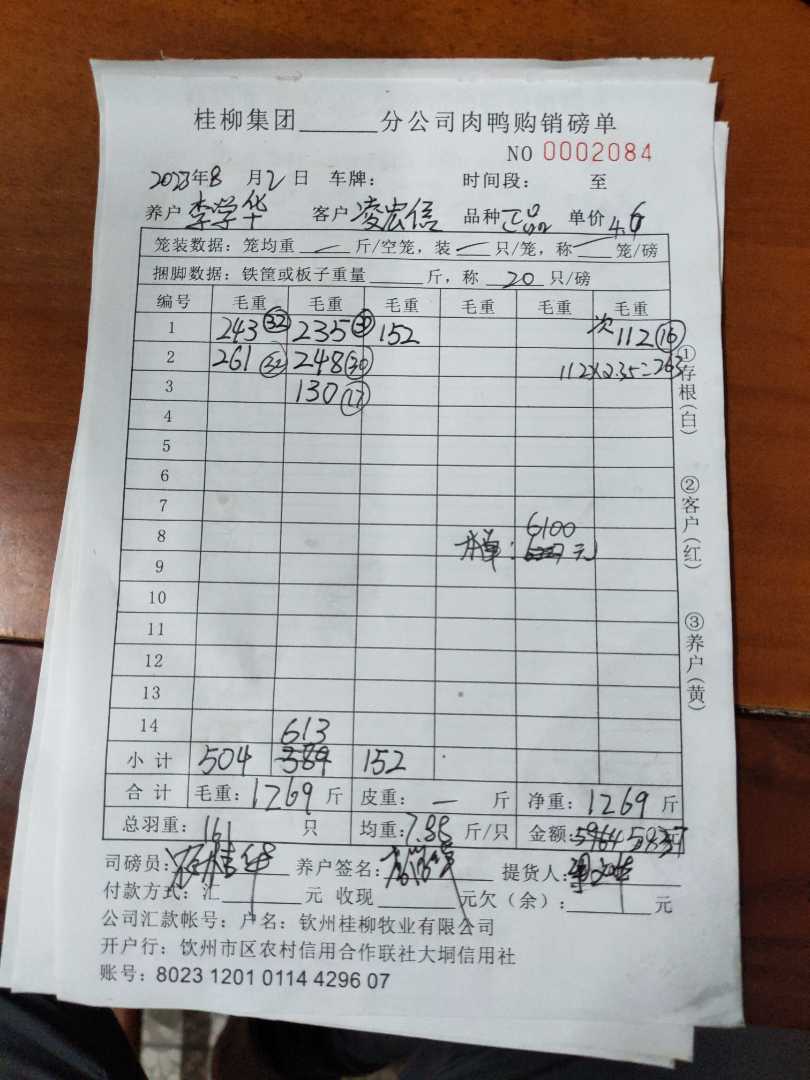 桂柳集团______分公司肉鸭购销磅单
NO 0002084
2023年8月2日 车牌: 时间段: 至
养户 李学华 客户 凌宏信 品种 正品 单价 4.6
笼装数据: 笼均重 — 斤/空笼, 装 — 只/笼, 称 — 笼/磅
捆脚数据: 铁筐或板子重量____斤, 称 20 只/磅
编号 毛重 毛重 毛重 毛重 毛重 毛重
1 243 (32) 235 152 次 112 (16)
2 261 (32) 248 (30) 112×2.35=263
3 130 (17)
4
5
6
7
8 6100
元
9
10
11
12
13
14 613
小计 504 589 152
合计 毛重: 1269 斤 皮重: — 斤 净重: 1269 斤
总羽重: 161 只 均重: 7.88 斤/只 金额: 5964 5837
司磅员: 养户签名: 提货人:
付款方式: 汇______元 收现______元欠(余):______元
公司汇款帐号: 户名: 钦州桂柳牧业有限公司
开户行: 钦州市区农村信用合作联社大垌信用社
账号: 8023 1201 0114 4296 07
①存根(白)
②客户(红)
③养户(黄)